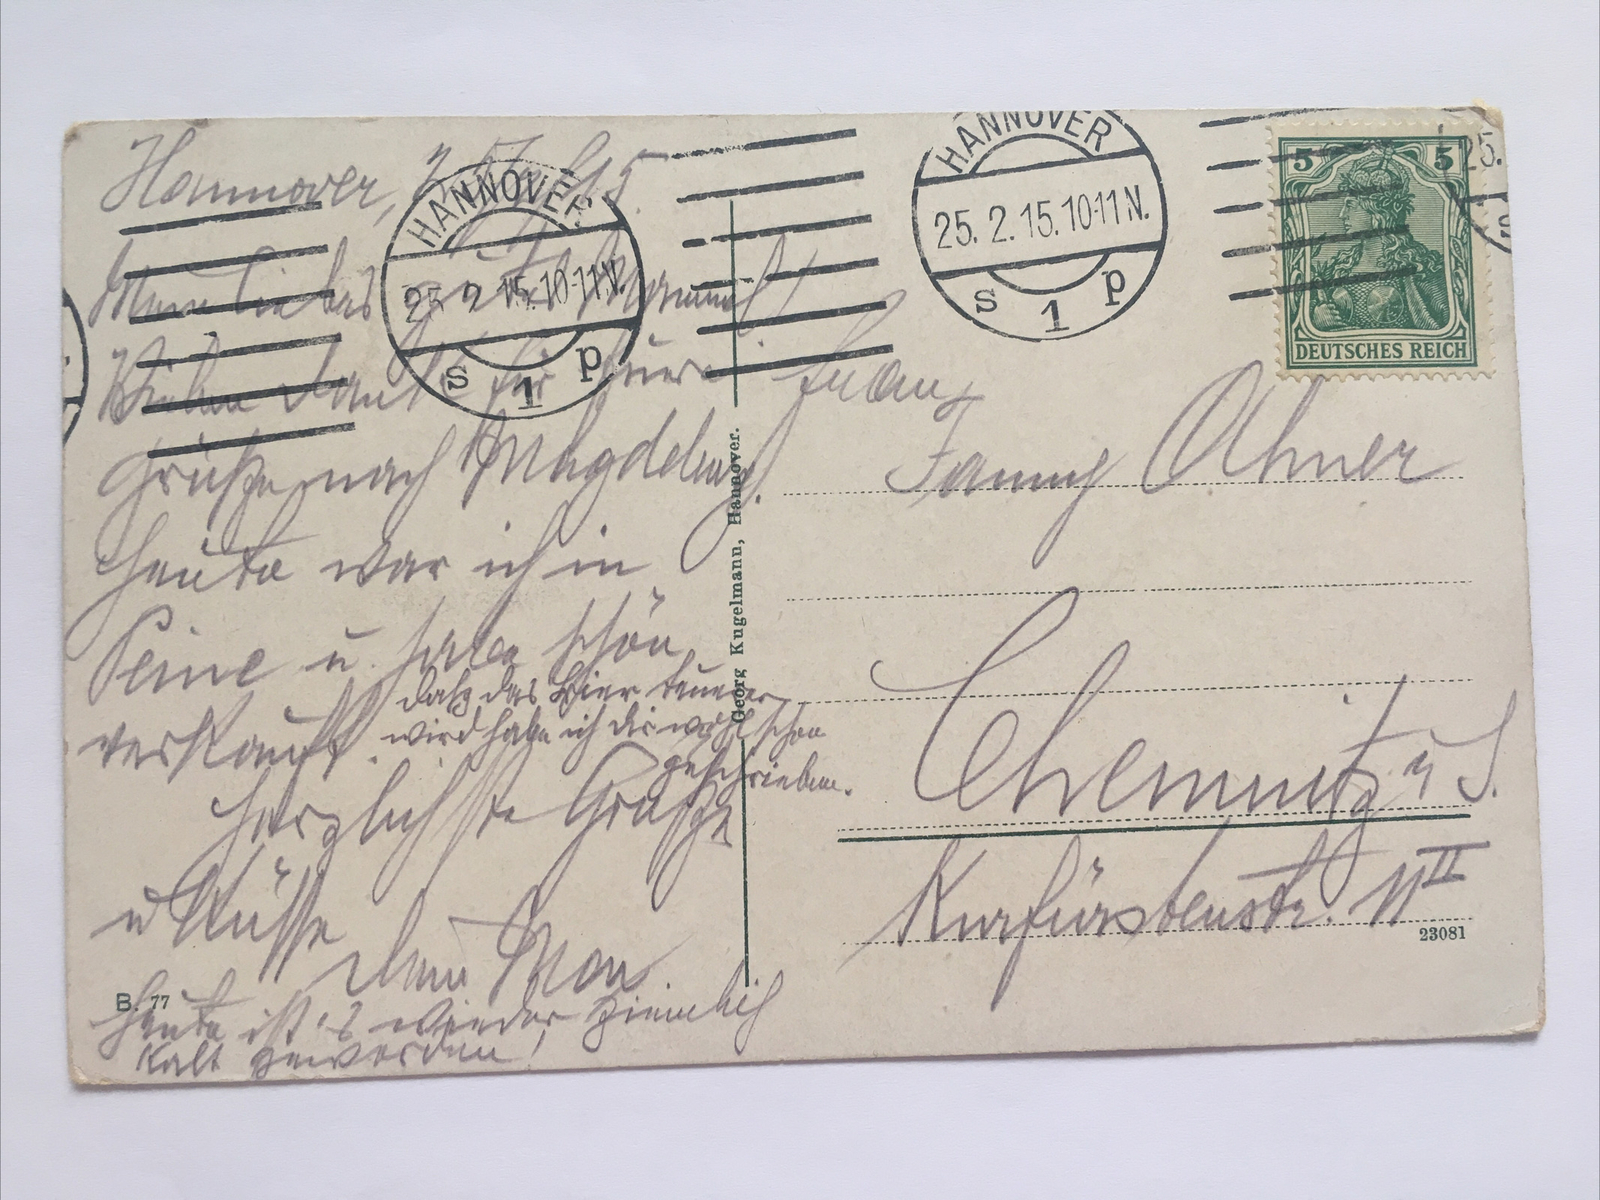 Hannover, 25.
HANNOVER
25. 2. 15. 10-11 N.
s 1 p
HANNOVER
25. 2. 15. 10-11 N.
s 1 p
25.
5 5
DEUTSCHES REICH
Mein liebes
Vielen Dank für Eure
Grüße nach Magdeburg.
Heute war ich in
Peine u. habe schön
verkauft.
daß das Bier teurer
wird habe ich dir wohl schon
geschrieben.
Herzlichste Grüße
u Küsse
Dein Max
Heute ist's wieder ziemlich
kalt geworden!
B. 77
Georg Kugelmann, Hannover.
Frau
Fanny Ahner
Chemnitz i S.
Kurfürstenstr. II
23081